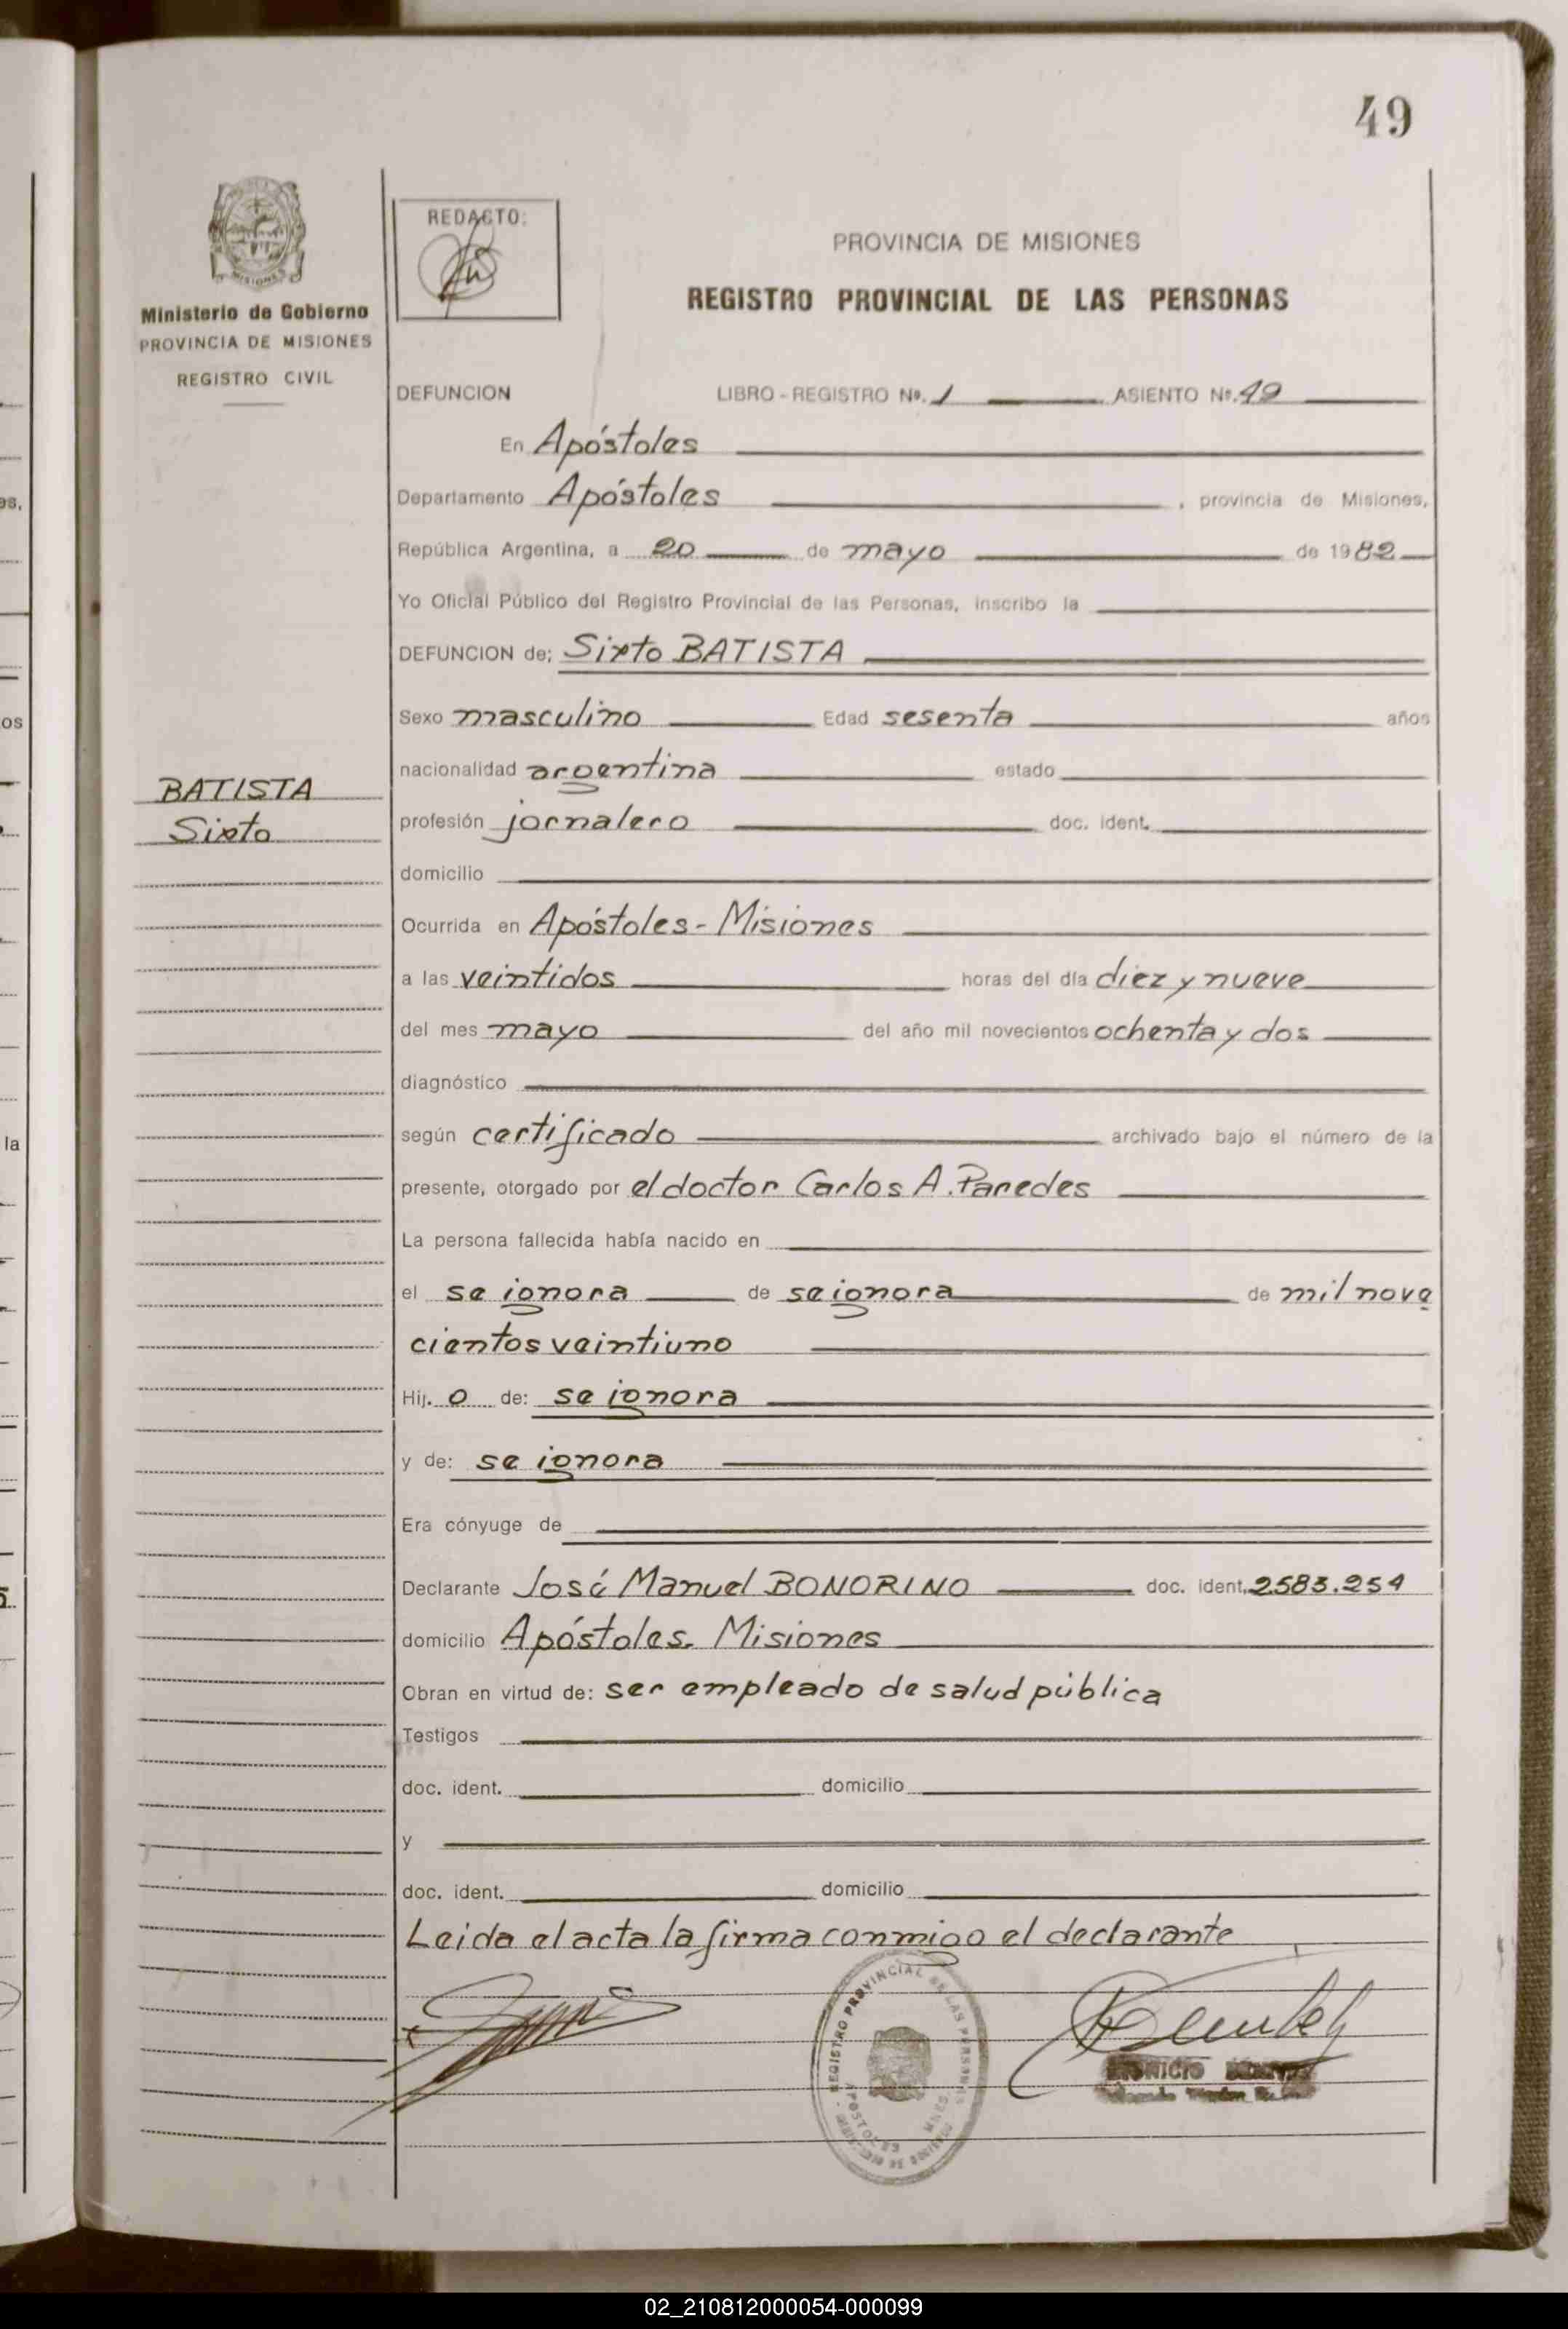 49
MISIONES
Ministerio de Gobierno
PROVINCIA DE MISIONES
REGISTRO CIVIL
REDACTO:
PROVINCIA DE MISIONES
REGISTRO PROVINCIAL DE LAS PERSONAS
DEFUNCION LIBRO - REGISTRO Nº. 1 ASIENTO Nº. 49
En Apóstoles
Departamento Apóstoles , provincia de Misiones,
República Argentina, a 20 de mayo de 1982
Yo Oficial Público del Registro Provincial de las Personas, inscribo la
DEFUNCION de; Sixto BATISTA
Sexo masculino Edad sesenta años
nacionalidad argentina estado
BATISTA
Sixto
profesión jornalero doc. ident.
domicilio
Ocurrida en Apóstoles - Misiones
a las veintidos horas del día diez y nueve
del mes mayo del año mil novecientos ochenta y dos
diagnóstico
según certificado archivado bajo el número de la
presente, otorgado por el doctor Carlos A. Paredes
La persona fallecida había nacido en
el se ignora de se ignora de mil nove
cientos veintiuno
Hij. o de: se ignora
y de: se ignora
Era cónyuge de
Declarante José Manuel BONORINO doc. ident. 2583.254
domicilio Apóstoles. Misiones
Obran en virtud de: ser empleado de salud pública
Testigos
doc. ident. domicilio
y
doc. ident. domicilio
Leida el acta la firma conmigo el declarante
REGISTRO PROVINCIAL DE LAS PERSONAS
APOSTOLES MNES
02_210812000054-000099